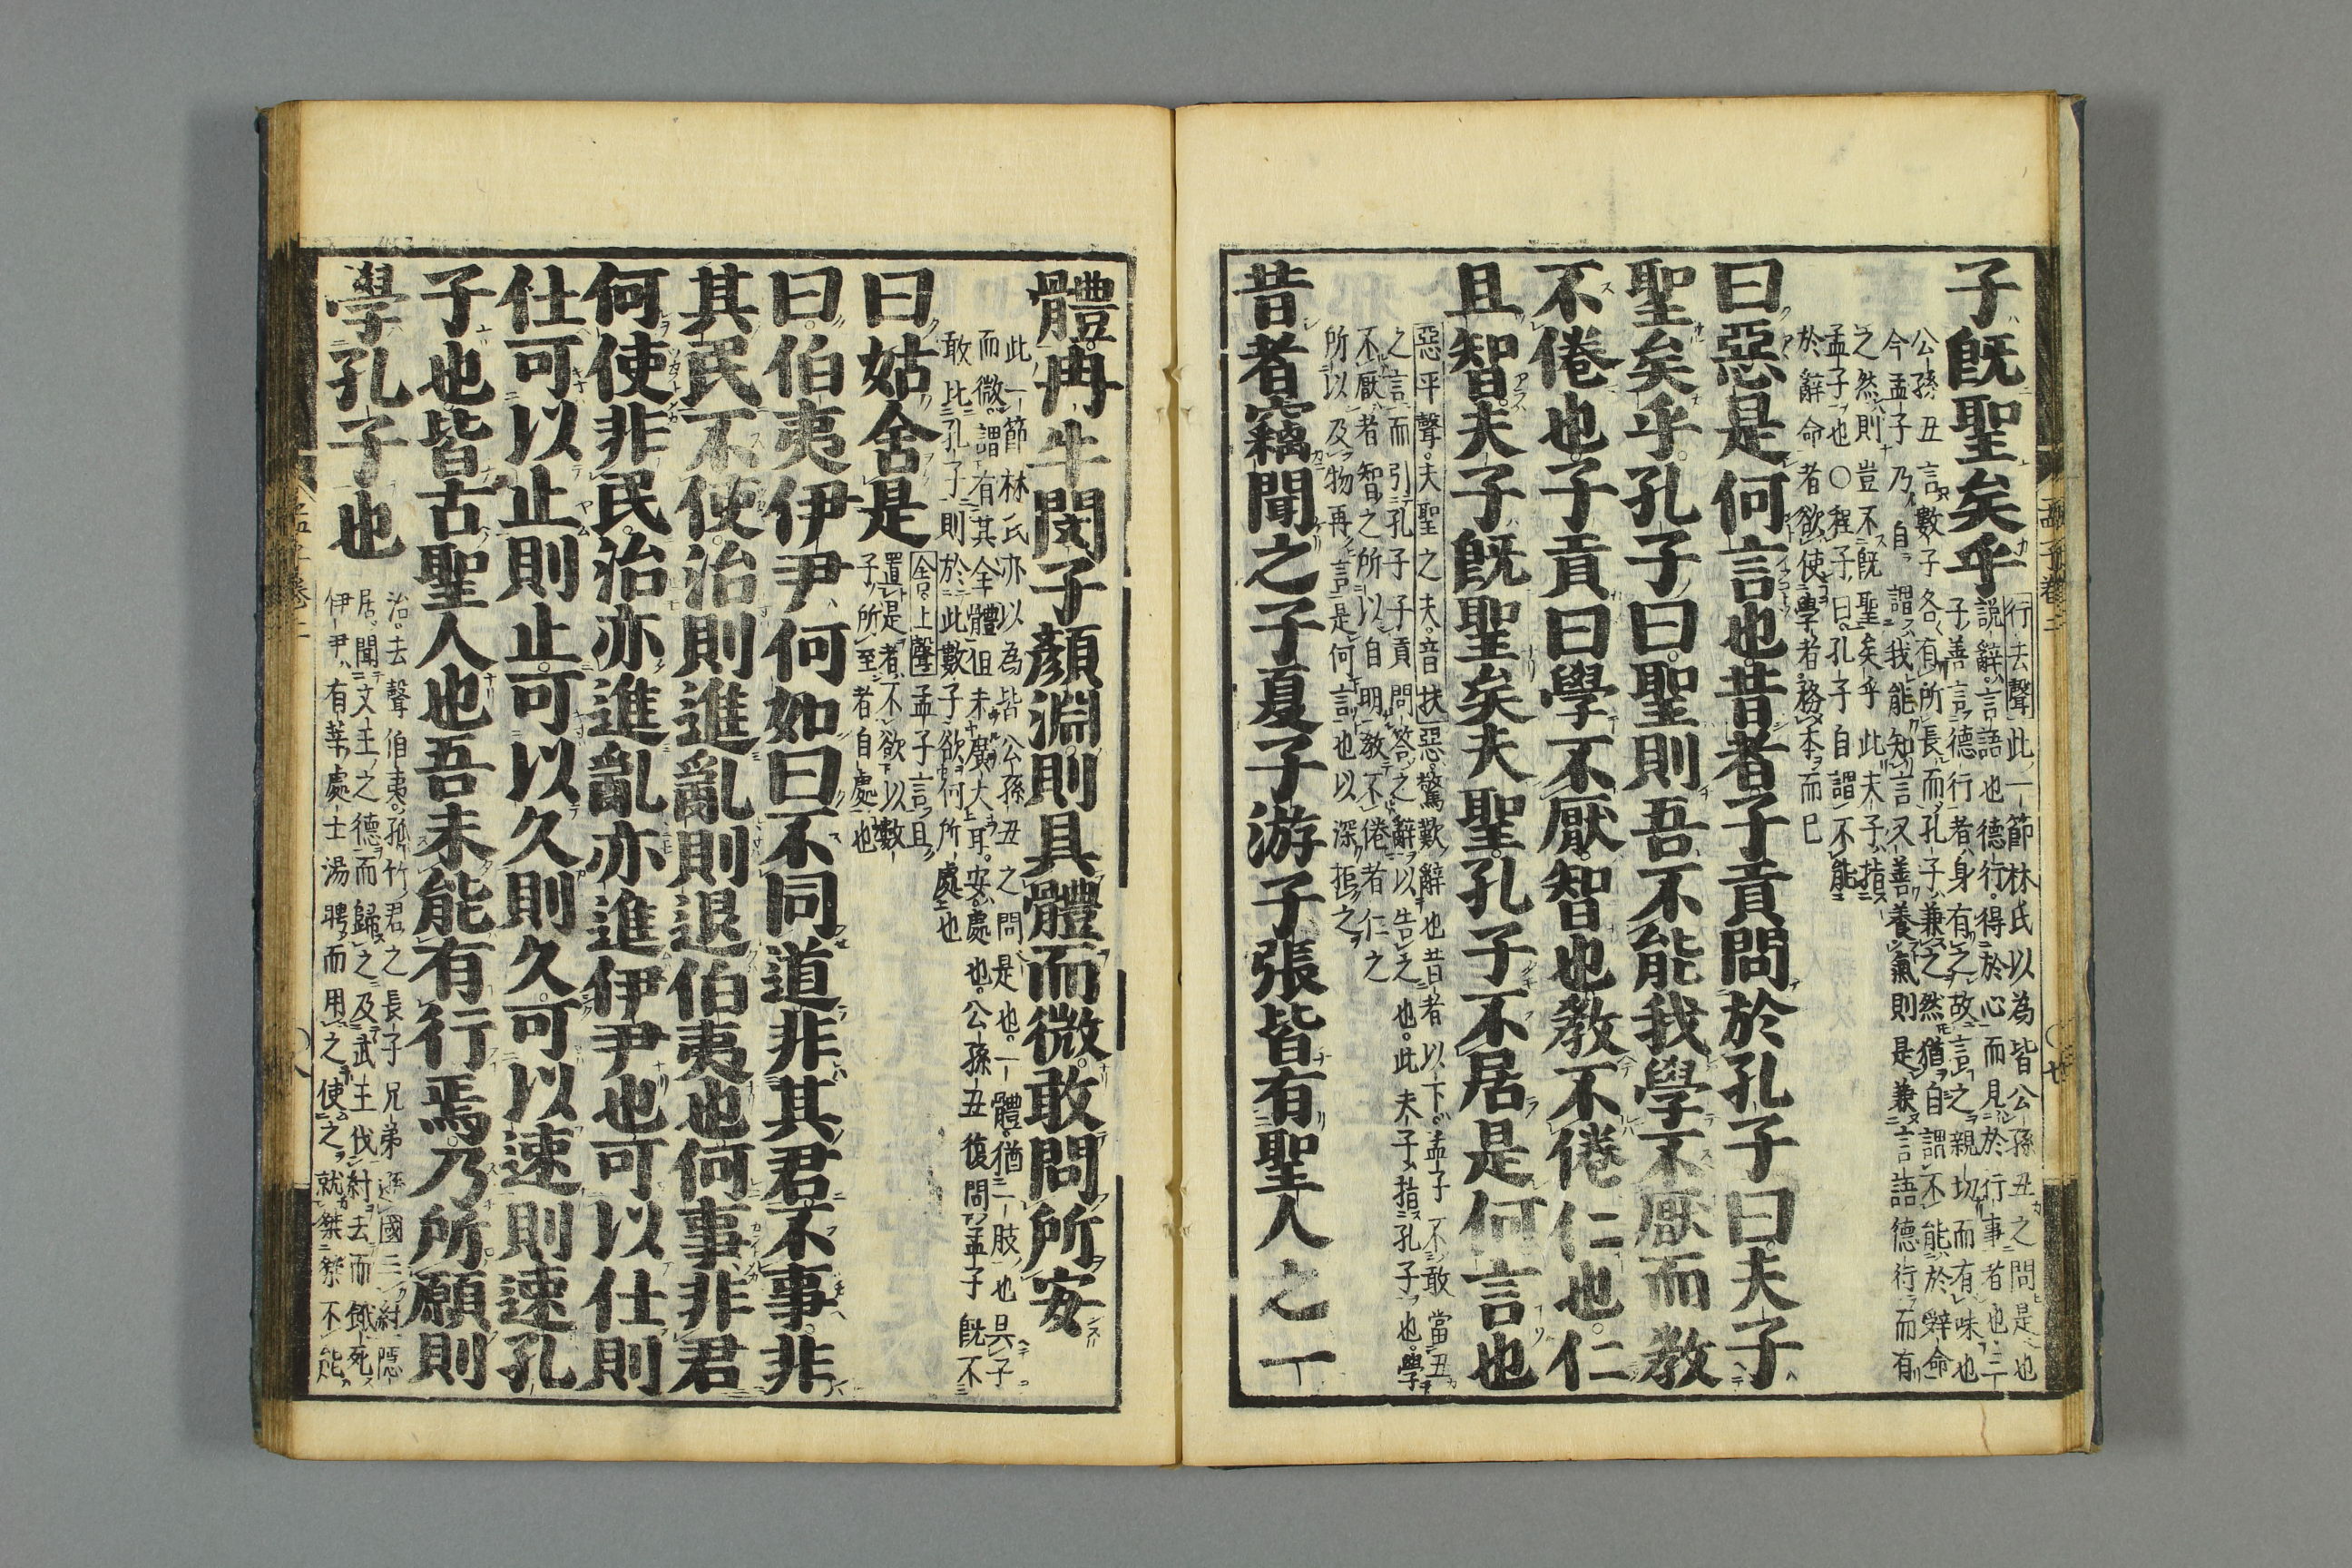 子既聖矣乎
行去聲此一節林氏以為皆公孫丑之問是也
說辭言語也德行得於心而見於行事者也二
子善言德行者身有之故言之親切而有味也
公孫丑言數子各有所長而孔子兼之然猶自謂不能於辭命
今孟子乃自謂我能知言又善養氣則是兼言語德行而有
之然則豈不既聖矣乎此夫子指
孟子也〇程子曰孔子自謂不能
於辭命者欲使學者務本而已
曰惡是何言也昔者子貢問於孔子曰夫子
聖矣乎孔子曰聖則吾不能我學不厭而教
不倦也子貢曰學不厭智也教不倦仁也仁
且智夫子既聖矣夫聖孔子不居是何言也
惡平聲夫聖之夫音扶惡驚歎辭也昔者以下孟子不敢當丑
之言而引孔子子貢問答之辭以告之也此夫子指孔子也學
不厭者智之所以自明教不倦者仁之
所以及物再言是何言也以深拒之
昔者竊聞之子夏子游子張皆有聖人之一
體冉牛閔子顏淵則具體而微敢問所安
此一節林氏亦以為皆公孫丑之問是也一體猶一肢也具
而微謂有其全體但未廣大耳安處也公孫丑復問孟子既不
敢比孔子則於此數子欲何所處也
曰姑舍是
舍上聲孟子言且
置是者不欲以數
子所至者自處也
曰伯夷伊尹何如曰不同道非其君不事非
其民不使治則進亂則退伯夷也何事非君
何使非民治亦進亂亦進伊尹也可以仕則
仕可以止則止可以久則久可以速則速孔
子也皆古聖人也吾未能有行焉乃所願則
學孔子也
治去聲伯夷孤竹君之長子兄弟遜國避紂隱
居聞文王之德而歸之及武王伐紂去而餓死
伊尹有莘處士湯聘而用之使之就桀桀不能
孟子卷二